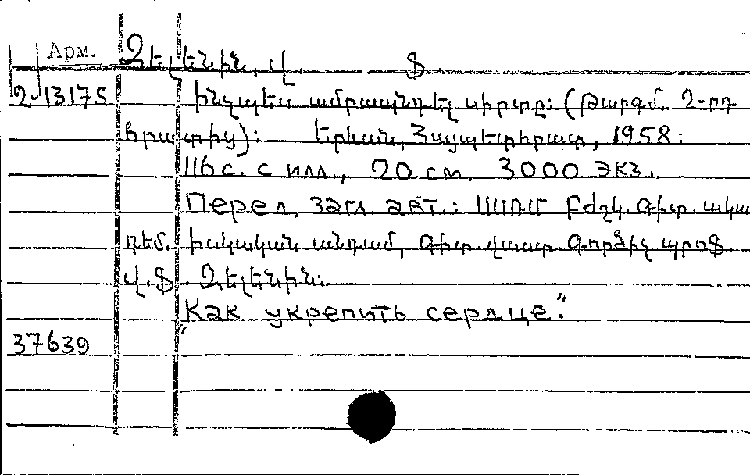 Арм.
Զելենին, վ. ֆ.
2-13175 Ինչպես ամրապնդել սիրտը: (Թարգմ. 2-րդ
հրատից): Երևան, Հայպետհրատ, 1958:
116 с. с илл., 20 см. 3000 экз.
Перед загл. авт.: ՍՍՌՄ Բժշկ. Գիտ. ակա
դեմ. իսկական անդամ, Գիտ. վաստ. Գործիչ պրոֆ.
Վ. Ֆ. Զելենին:
"Как укрепить сердце."
37639